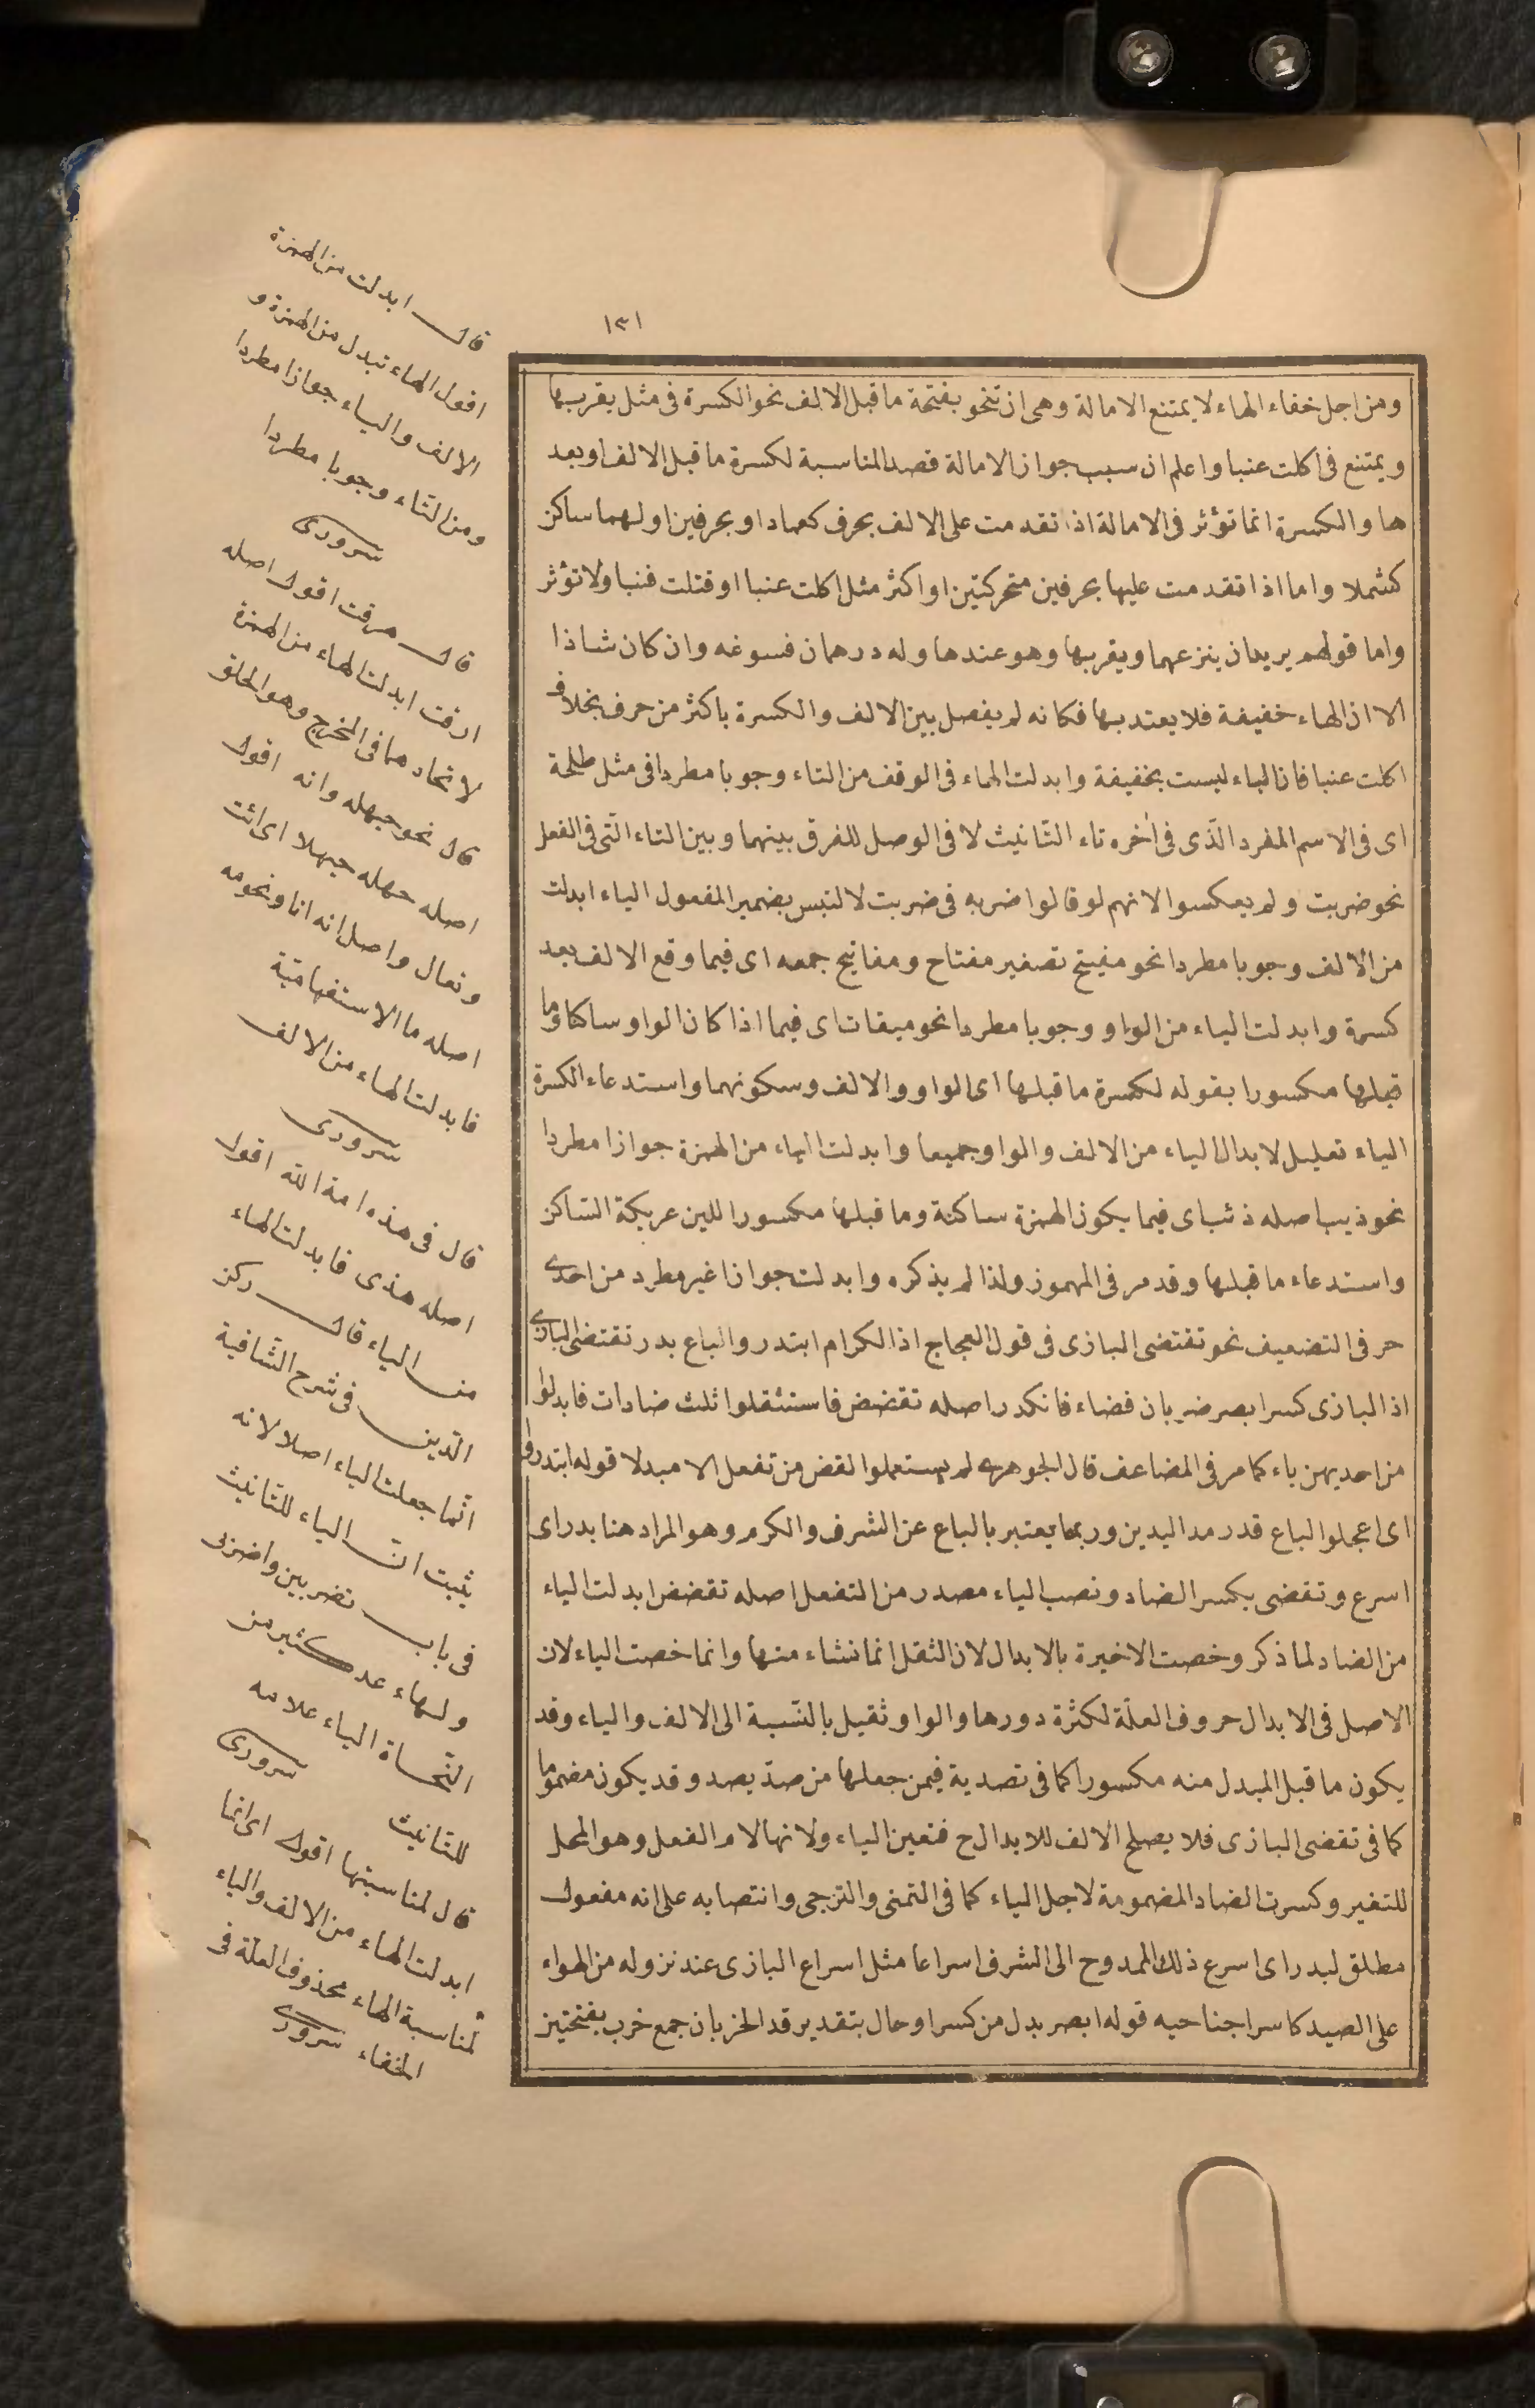 ١٣١
ومن اجل خفاء الهاء لا يمتنع الامالة وهى ان تنحو بفتحة ما قبل الالف نحو الكسرة فى مثل يقربها
ويمتنع فى اكلت عنبا واعلم ان سبب جواز الامالة قصد المناسبة لكسرة ما قبل الالف او بعد
ها والكسرة انما تؤثر فى الامالة اذا تقدمت على الالف بحرف كعماد او بحرفين اولهما ساكن
كشملا واما اذا تقدمت عليها بحرفين متحركتين او اكثر مثل اكلت عنبا او قتلت قنبا ولا تؤثر
واما قولهم يريدان ينزعهما ويقربها وهو عندها وله درهمان فسوغه وان كان شاذا
الا ان الهاء خفيفة فلا يعتد بها فكانه لم يفصل بين الالف والكسرة باكثر من حرف بخلاف
اكلت عنبا فان الباء ليست بخفيفة وابدلت الهاء فى الوقف من التاء وجوبا مطردا فى مثل طلحة
اى فى الاسم المفرد الذى فى آخره تاء التانيث لا فى الوصل للفرق بينهما وبين التاء التى فى الفعل
نحو ضربت ولم يعكسوا لانهم لو قالوا ضربه فى ضربت لالتبس بضمير المفعول الياء ابدلت
من الالف وجوبا مطردا نحو مفيتح تصغير مفتاح ومفاتيح جمعه اى فيما وقع الالف بعد
كسرة وابدلت الياء من الواو وجوبا مطردا نحو ميقات اى فيما اذا كان الواو ساكنا وما
قبلها مكسورا بقوله لكسرة ما قبلها اى الواو والالف وسكونهما واستدعاء الكسرة
الياء تعليل لابدال الياء من الالف والواو جميعا وابدلت الياء من الهمزة جوازا مطردا
نحو ذيب اصله ذئب اى فيما يكون الهمزة ساكنة وما قبلها مكسورا للين عريكة الساكن
واستدعاء ما قبلها وقد مر فى المهموز ولذا لم يذكره وابدلت جوازا غير مطرد من احدى
حرفى التضعيف نحو تقتضى البازى فى قول العجاج اذا الكرام ابتدر والباع بدر تقتضى البازى
اذا البازى كسر ابصر خربان فضاء فانكدر اصله تقضض فاستثقلوا ثلث ضادات فابدلوا
من احديهن ياء كما مر فى المضاعف قال الجوهرى لم يستعملوا القض من تفعل الا مبدلا قوله ابتدروا
اى اعجلوا الباع قدر مد اليدين وربما يعتبر بالباع عن الشرف والكرم وهو المراد هنا بدر اى
اسرع وتقضى بكسر الضاد ونصب الياء مصدر من التفعل اصله تقضض ابدلت الياء
من الضاد لما ذكر وخصت الاخيرة بالابدال لان الثقل انما نشاء منها وانما خصت الياء لان
الاصل فى الابدال حروف العلة لكثرة دورها والواو ثقيل بالنسبة الى الالف والياء وقد
يكون ما قبل المبدل منه مكسورا كما فى تصدية فيمن جعلها من صد يصد وقد يكون مضموما
كما فى تقضى البازى فلا يصلح الالف للابدال ح فتعين الياء ولانها لام الفعل وهو المحل
للتغير وكسرت الضاد المضمومة لاجل الياء كما فى التمنى والترجى وانتصابه على انه مفعول
مطلق لبدر اى اسرع ذلك الممدوح الى الشرف اسراعا مثل اسراع البازى عند نزوله من الهواء
على الصيد كاسرا جناحيه قوله ابصر بدل من كسر او حال بتقدير قد الخربان جمع خرب بفتحتين
قال ابدلت من الهمزة
اقول الهاء تبدل من الهمزة و
الالف والياء جوازا مطردا
ومن التاء وجوبا مطردا
سرورى
قال هرقت اقول اصله
ارقت ابدلت الهاء من الهمزة
لاتحادهما فى المخرج وهو الحلق
قال نحو حيهله وانه اقول
اصله حهله حيهلا اى ائت
وتعال واصل انه انا ونحو مه
اصله ما الاستفهامية
فابدلت الهاء من الالف
سرورى
قال فى هذه امة الله اقول
اصله هذى فابدلت الهاء
من الياء قال ركن
الدين فى شرح الشافية
انما جعلت الياء اصلا لانه
يثبت ان الياء للتانيث
فى باب تضربين واضربى
ولهاء عد كثير من
النحاة الياء علامه
للتانيث سرورى
قال لمناسبتها اقول اى انما
ابدلت الهاء من الالف والياء
لمناسبة الهاء بحذوف العلة فى
الخفاء سرورى